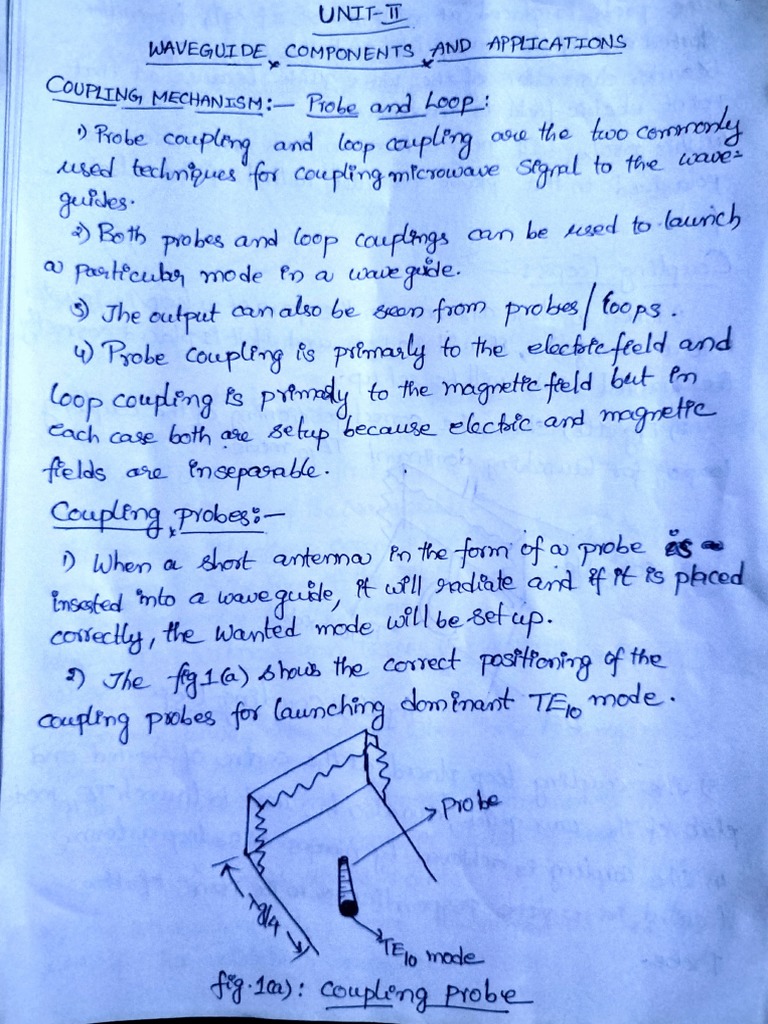 UNIT-II
WAVEGUIDE COMPONENTS AND APPLICATIONS
COUPLING MECHANISM:- Probe and Loop:
1) Probe coupling and loop coupling are the two commonly
used techniques for coupling microwave signal to the wave-
guides.
2) Both probes and loop couplings can be used to launch
a particular mode in a waveguide.
3) The output can also be seen from probes/loops.
4) Probe coupling is primarly to the electric field and
loop coupling is primarly to the magnetic field but in
each case both are setup because electric and magnetic
fields are inseparable.
Coupling probes:-
1) When a short antenna in the form of a probe is
inserted into a waveguide, it will radiate and if it is placed
correctly, the wanted mode will be set up.
2) The fig 1(a) shows the correct positioning of the
coupling probes for launching dominant TE10 mode.
Probe
λg/4
TE10 mode
fig.1(a): coupling probe